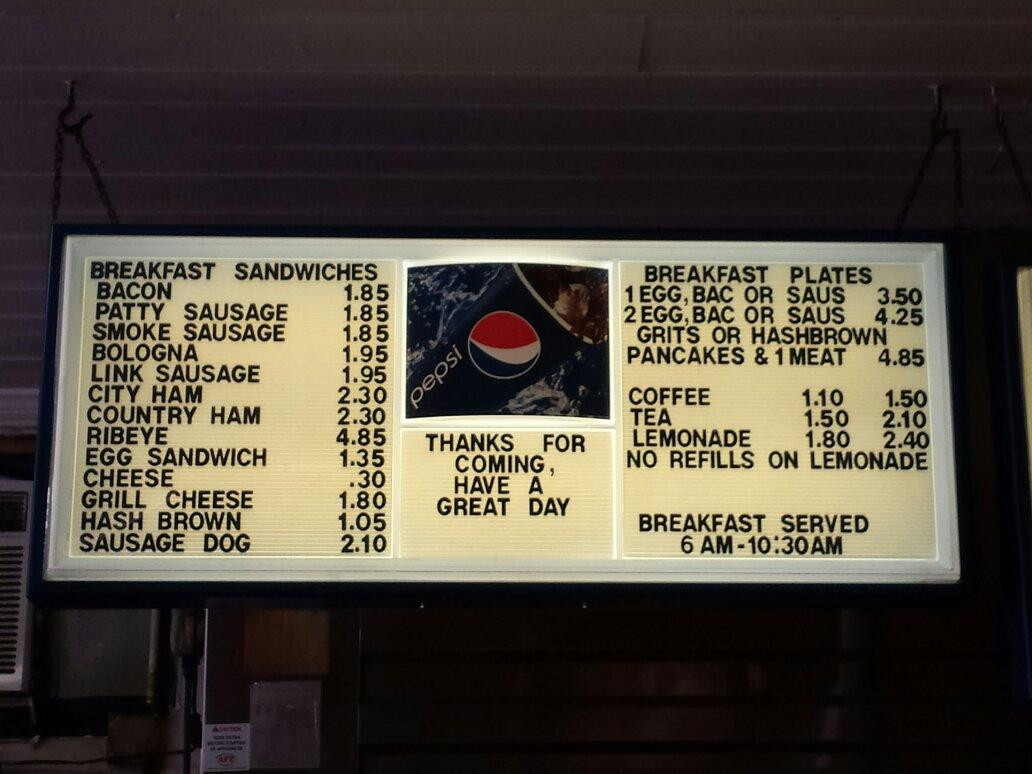 BREAKFAST SANDWICHES
BACON 1.85
PATTY SAUSAGE 1.85
SMOKE SAUSAGE 1.85
BOLOGNA 1.95
LINK SAUSAGE 1.95
CITY HAM 2.30
COUNTRY HAM 2.30
RIBEYE 4.85
EGG SANDWICH 1.35
CHEESE .30
GRILL CHEESE 1.80
HASH BROWN 1.05
SAUSAGE DOG 2.10
pepsi
THANKS FOR
COMING,
HAVE A
GREAT DAY
BREAKFAST PLATES
1 EGG, BAC OR SAUS 3.50
2 EGG, BAC OR SAUS 4.25
GRITS OR HASHBROWN
PANCAKES & 1 MEAT 4.85
COFFEE 1.10 1.50
TEA 1.50 2.10
LEMONADE 1.80 2.40
NO REFILLS ON LEMONADE
BREAKFAST SERVED
6 AM-10:30AM
CAUTION